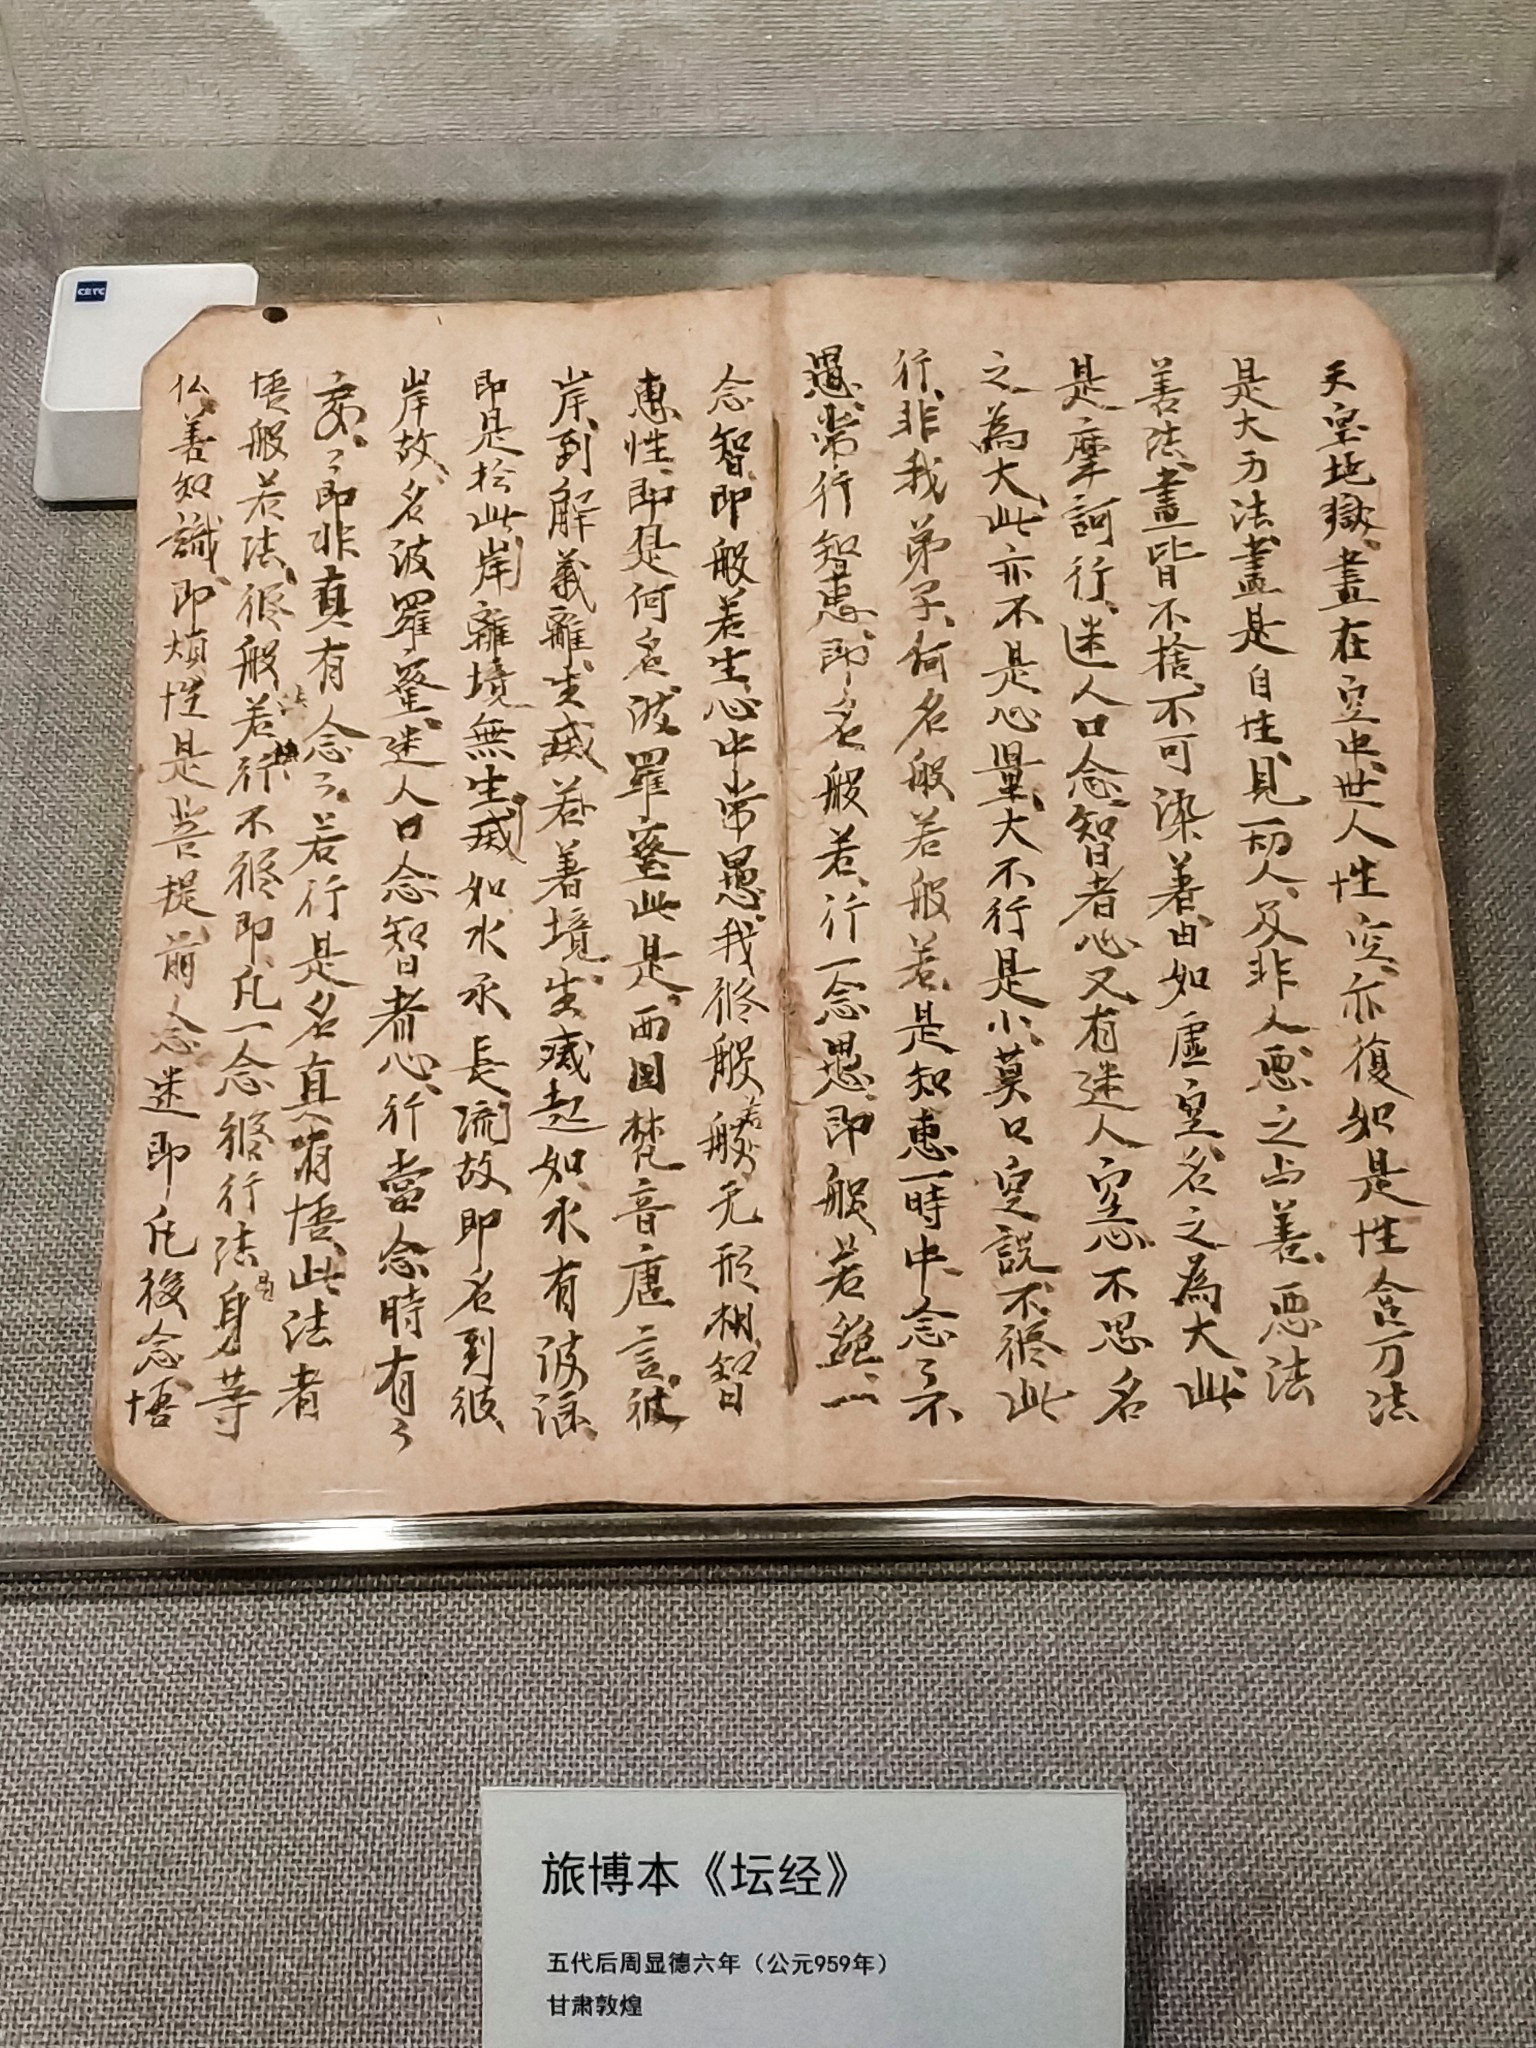 天堂地獄盡在空中世人性空亦復如是性含万法
是大万法盡是自性見一切人及非人惡之与善惡法
善法盡皆不捨不可染著由如虛空名之為大此
是摩訶行迷人口念智者心又有迷人空心不思名
之為大此亦不是心量大不行是小莫口空說不修此
行非我弟子何名般若般若是知惠一時中念〻不
愚常行智惠即名般若行一念愚即般若絕一
念智即般若生心中常愚我修般般若无形相智
惠性即是何名波羅蜜此是西國梵音唐言彼
岸到解義離生滅若著境生滅起如水有波浪
即是於此岸離境無生滅如水承長流故即名到彼
岸故名波羅蜜迷人口念智者心行當念時有〻
妄〻即非真有念〻若行是名真有悟此法者
悟般若法修般若行不修即凡一念修行法身等
仏善知識即煩性是菩提前念迷即凡後念悟
CETC
旅博本《坛经》
五代后周显德六年（公元959年）
甘肃敦煌